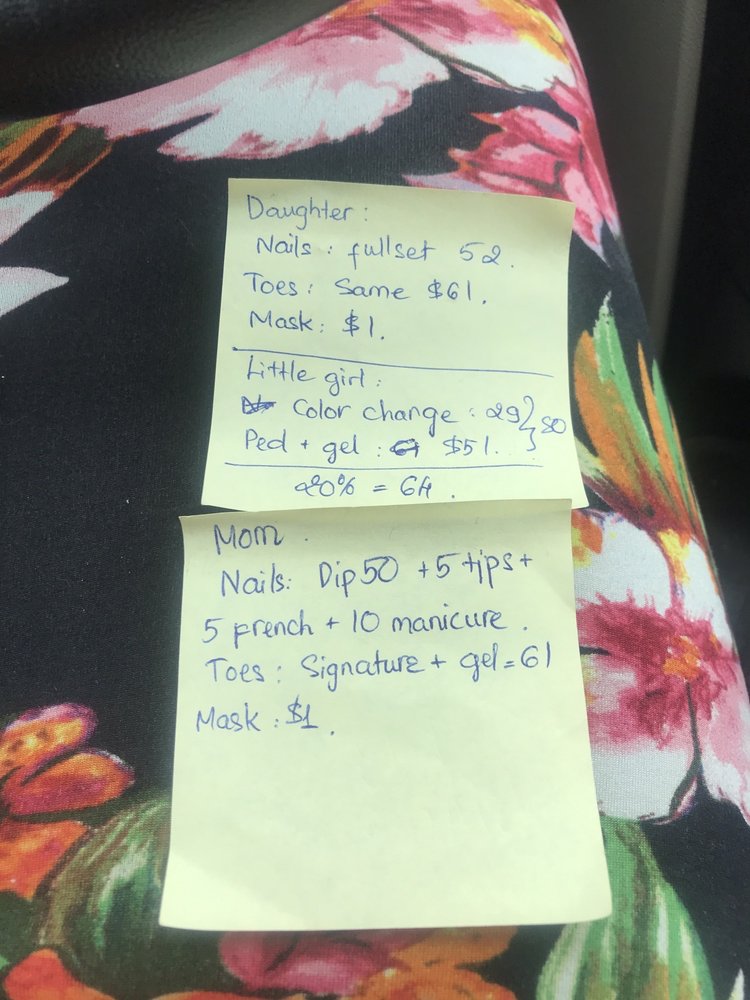 Daughter:
Nails: fullset 52.
Toes: Same $61.
Mask: $1.
Little girl:
Color change: 29 } 80
Ped + gel: $51.
20% = 64.
Mom.
Nails: Dip 50 + 5 tips +
5 french + 10 manicure.
Toes: Signature + gel = 61
Mask: $1.